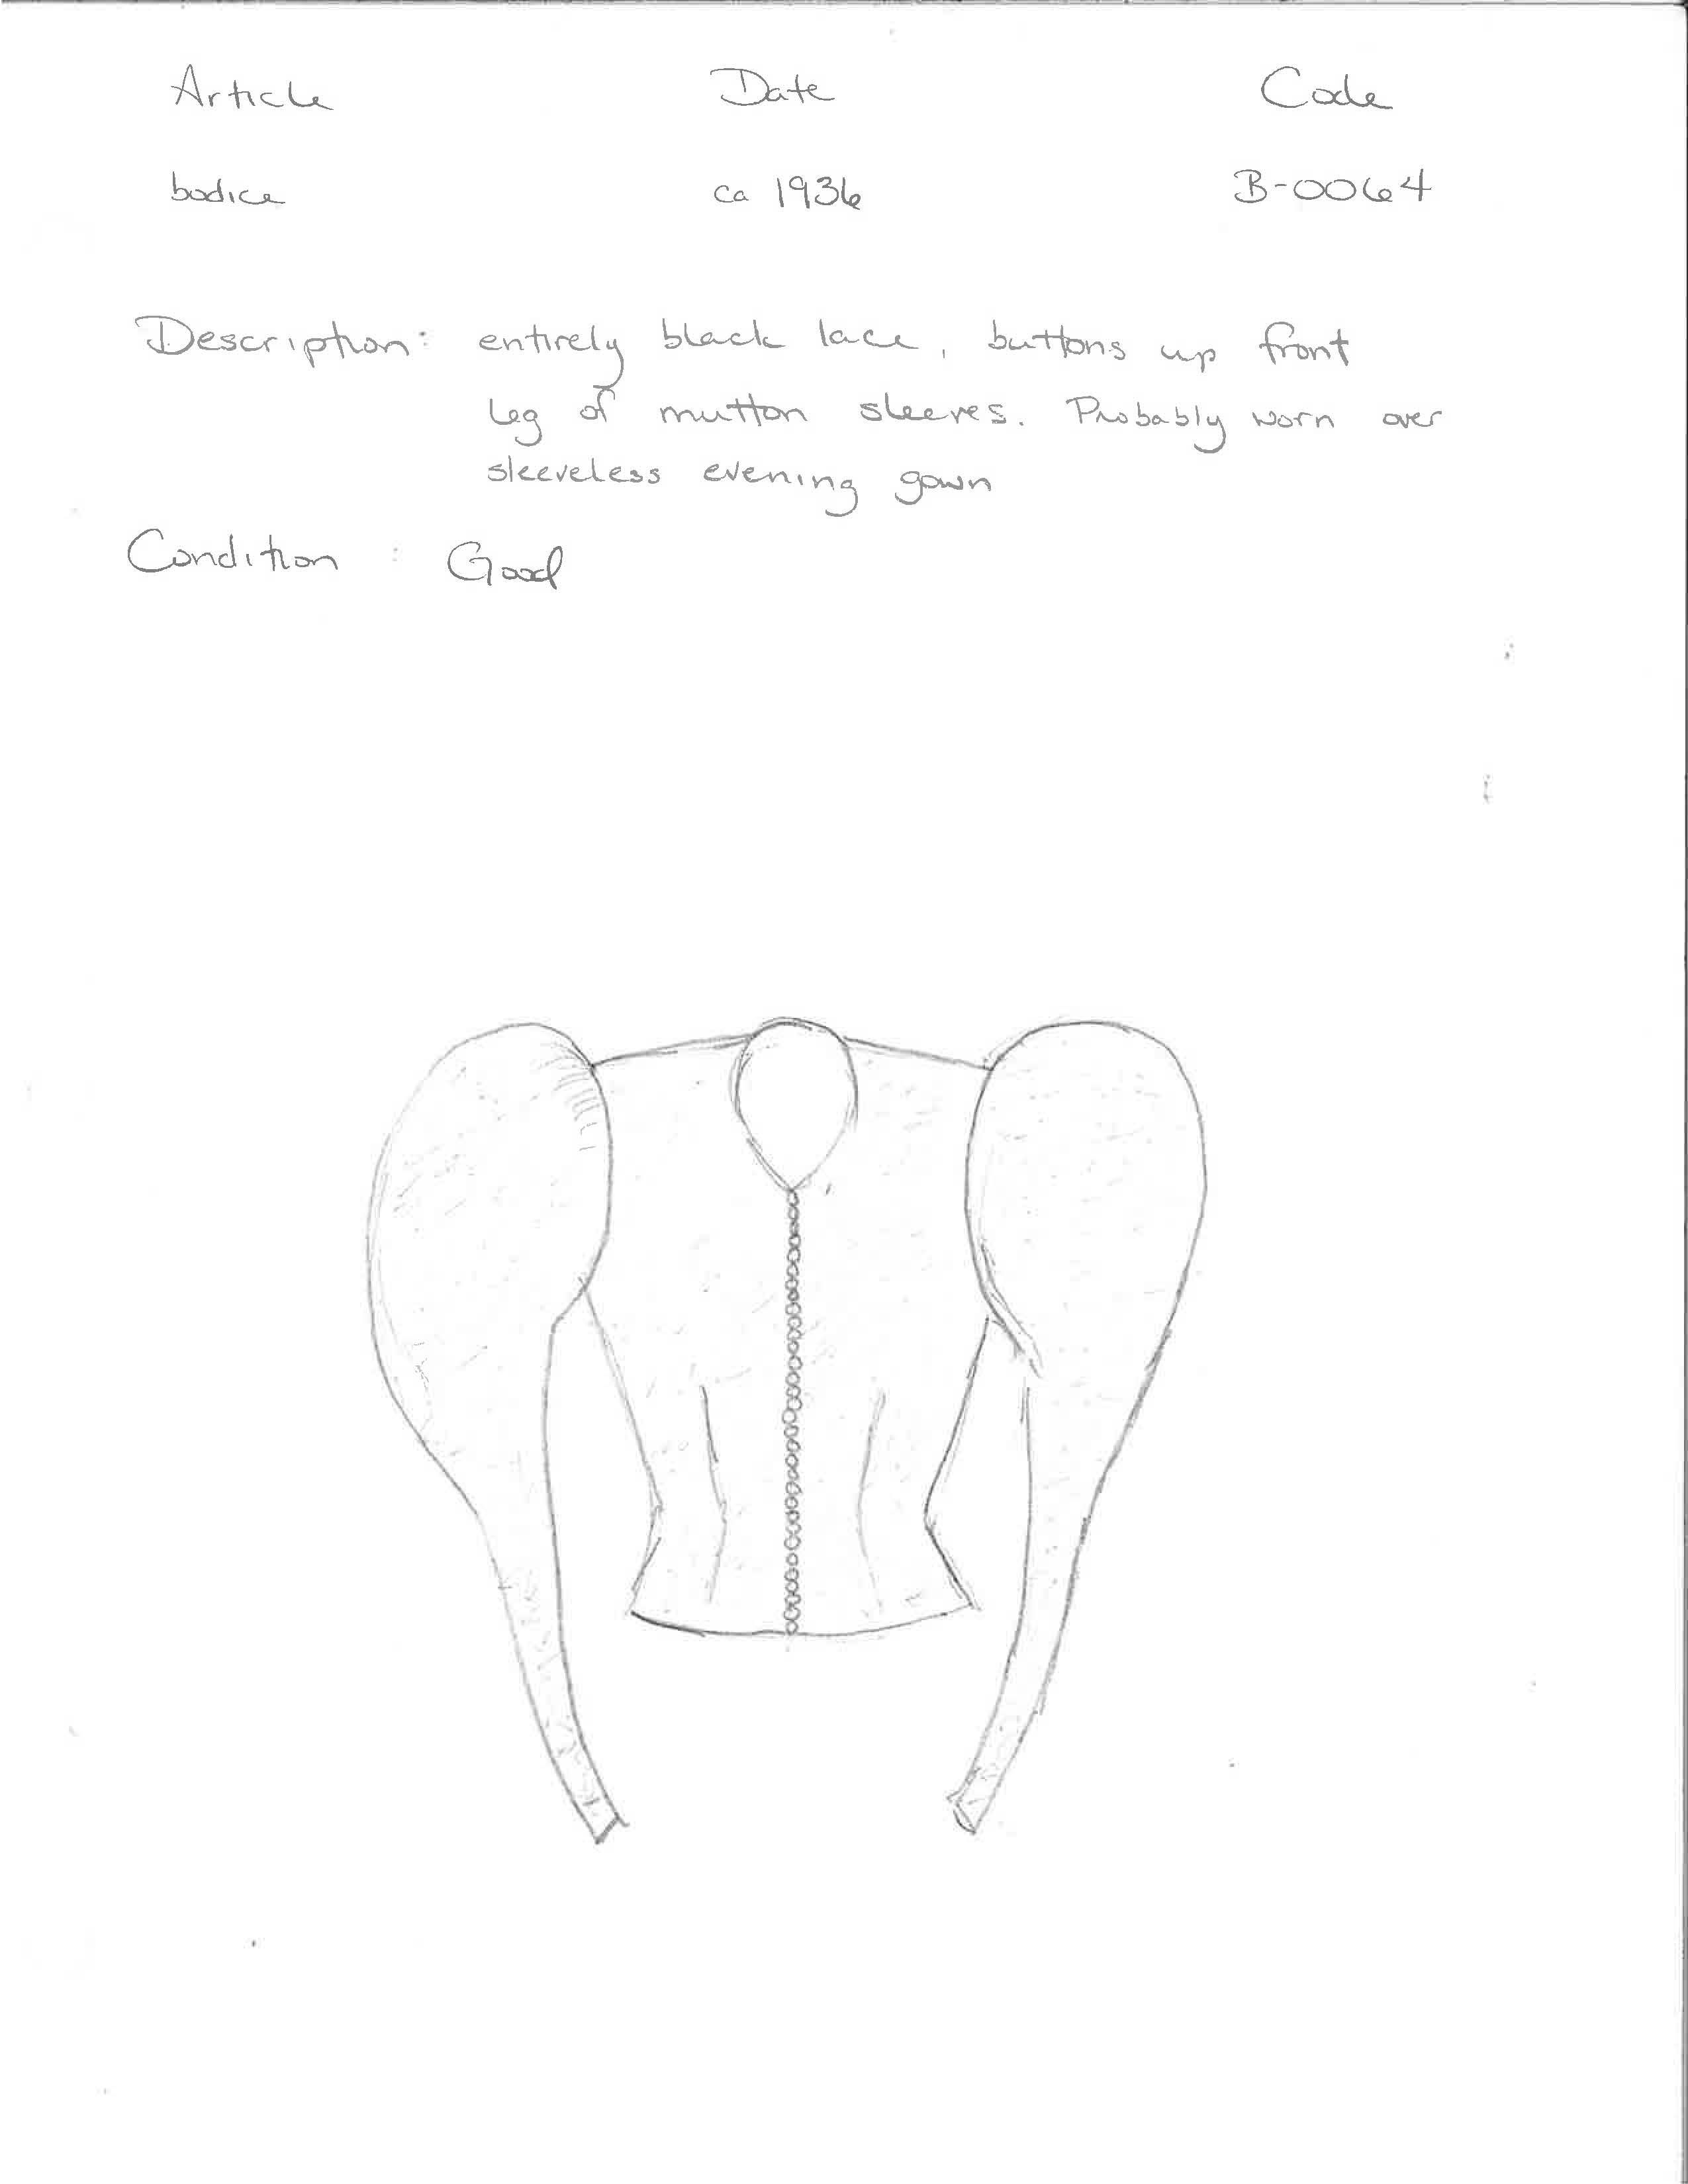 Article Date Code
bodice ca 1936 B-0064
Description: entirely black lace, buttons up front
leg of mutton sleeves. Probably worn over
sleeveless evening gown
Condition : Good